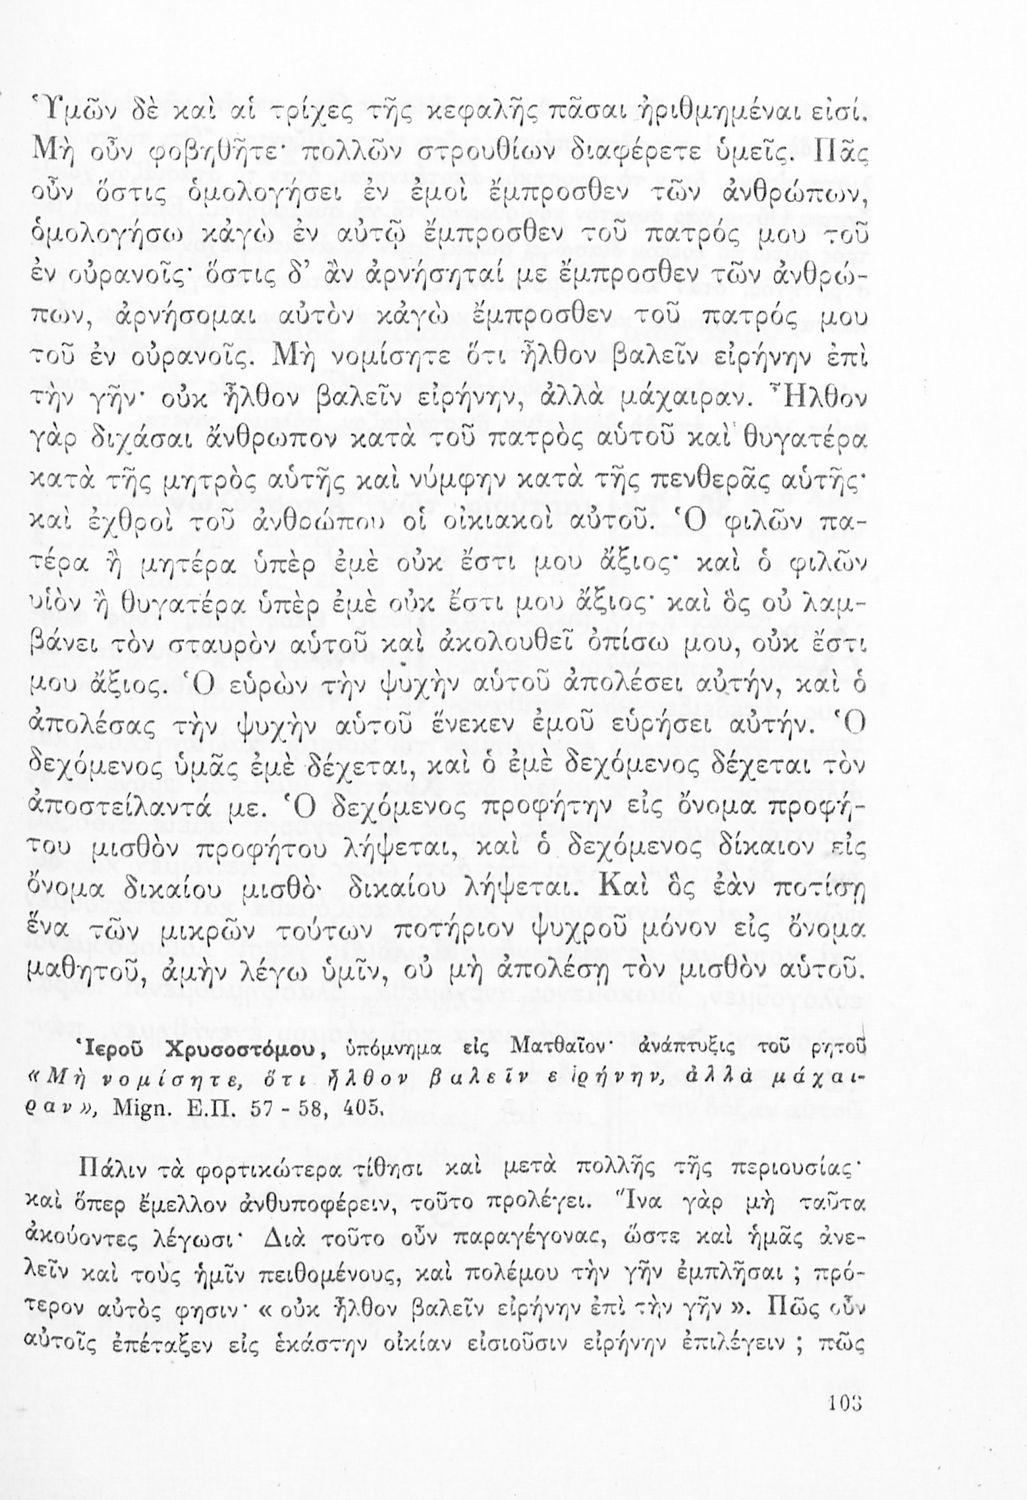 Ὑμῶν δὲ καὶ αἱ τρίχες τῆς κεφαλῆς πᾶσαι ἠριθμημέναι εἰσί.
Μὴ οὖν φοβηθῆτε· πολλῶν στρουθίων διαφέρετε ὑμεῖς. Πᾶς
οὖν ὅστις ὁμολογήσει ἐν ἐμοὶ ἔμπροσθεν τῶν ἀνθρώπων,
ὁμολογήσω κἀγὼ ἐν αὐτῷ ἔμπροσθεν τοῦ πατρός μου τοῦ
ἐν οὐρανοῖς· ὅστις δ’ ἂν ἀρνήσηταί με ἔμπροσθεν τῶν ἀνθρώ-
πων, ἀρνήσομαι αὐτὸν κἀγὼ ἔμπροσθεν τοῦ πατρός μου
τοῦ ἐν οὐρανοῖς. Μὴ νομίσητε ὅτι ἦλθον βαλεῖν εἰρήνην ἐπὶ
τὴν γῆν· οὐκ ἦλθον βαλεῖν εἰρήνην, ἀλλὰ μάχαιραν. Ἦλθον
γὰρ διχάσαι ἄνθρωπον κατὰ τοῦ πατρὸς αὑτοῦ καὶ θυγατέρα
κατὰ τῆς μητρὸς αὑτῆς καὶ νύμφην κατὰ τῆς πενθερᾶς αὑτῆς·
καὶ ἐχθροὶ τοῦ ἀνθρώπου οἱ οἰκιακοὶ αὐτοῦ. Ὁ φιλῶν πα-
τέρα ἢ μητέρα ὑπὲρ ἐμὲ οὐκ ἔστι μου ἄξιος· καὶ ὁ φιλῶν
υἱὸν ἢ θυγατέρα ὑπὲρ ἐμὲ οὐκ ἔστι μου ἄξιος· καὶ ὃς οὐ λαμ-
βάνει τὸν σταυρὸν αὑτοῦ καὶ ἀκολουθεῖ ὀπίσω μου, οὐκ ἔστι
μου ἄξιος. Ὁ εὑρὼν τὴν ψυχὴν αὑτοῦ ἀπολέσει αὐτήν, καὶ ὁ
ἀπολέσας τὴν ψυχὴν αὑτοῦ ἕνεκεν ἐμοῦ εὑρήσει αὐτήν. Ὁ
δεχόμενος ὑμᾶς ἐμὲ δέχεται, καὶ ὁ ἐμὲ δεχόμενος δέχεται τὸν
ἀποστείλαντά με. Ὁ δεχόμενος προφήτην εἰς ὄνομα προφή-
του μισθὸν προφήτου λήψεται, καὶ ὁ δεχόμενος δίκαιον εἰς
ὄνομα δικαίου μισθὸν δικαίου λήψεται. Καὶ ὃς ἐὰν ποτίσῃ
ἕνα τῶν μικρῶν τούτων ποτήριον ψυχροῦ μόνον εἰς ὄνομα
μαθητοῦ, ἀμὴν λέγω ὑμῖν, οὐ μὴ ἀπολέσῃ τὸν μισθὸν αὑτοῦ.
Ἱεροῦ Χρυσοστόμου, ὑπόμνημα εἰς Ματθαῖον· ἀνάπτυξις τοῦ ρητοῦ
«Μὴ νομίσητε, ὅτι ἦλθον βαλεῖν εἰρήνην, ἀλλὰ μάχαι-
ραν», Mign. Ε.Π. 57 - 58, 405.
Πάλιν τὰ φορτικώτερα τίθησι καὶ μετὰ πολλῆς τῆς περιουσίας·
καὶ ὅπερ ἔμελλον ἀνθυποφέρειν, τοῦτο προλέγει. Ἵνα γὰρ μὴ ταῦτα
ἀκούοντες λέγωσι· Διὰ τοῦτο οὖν παραγέγονας, ὥστε καὶ ἡμᾶς ἀνε-
λεῖν καὶ τοὺς ἡμῖν πειθομένους, καὶ πολέμου τὴν γῆν ἐμπλῆσαι ; πρό-
τερον αὐτὸς φησιν· « οὐκ ἦλθον βαλεῖν εἰρήνην ἐπὶ τὴν γῆν ». Πῶς οὖν
αὐτοῖς ἐπέταξεν εἰς ἑκάστην οἰκίαν εἰσιοῦσιν εἰρήνην ἐπιλέγειν ; πῶς
103